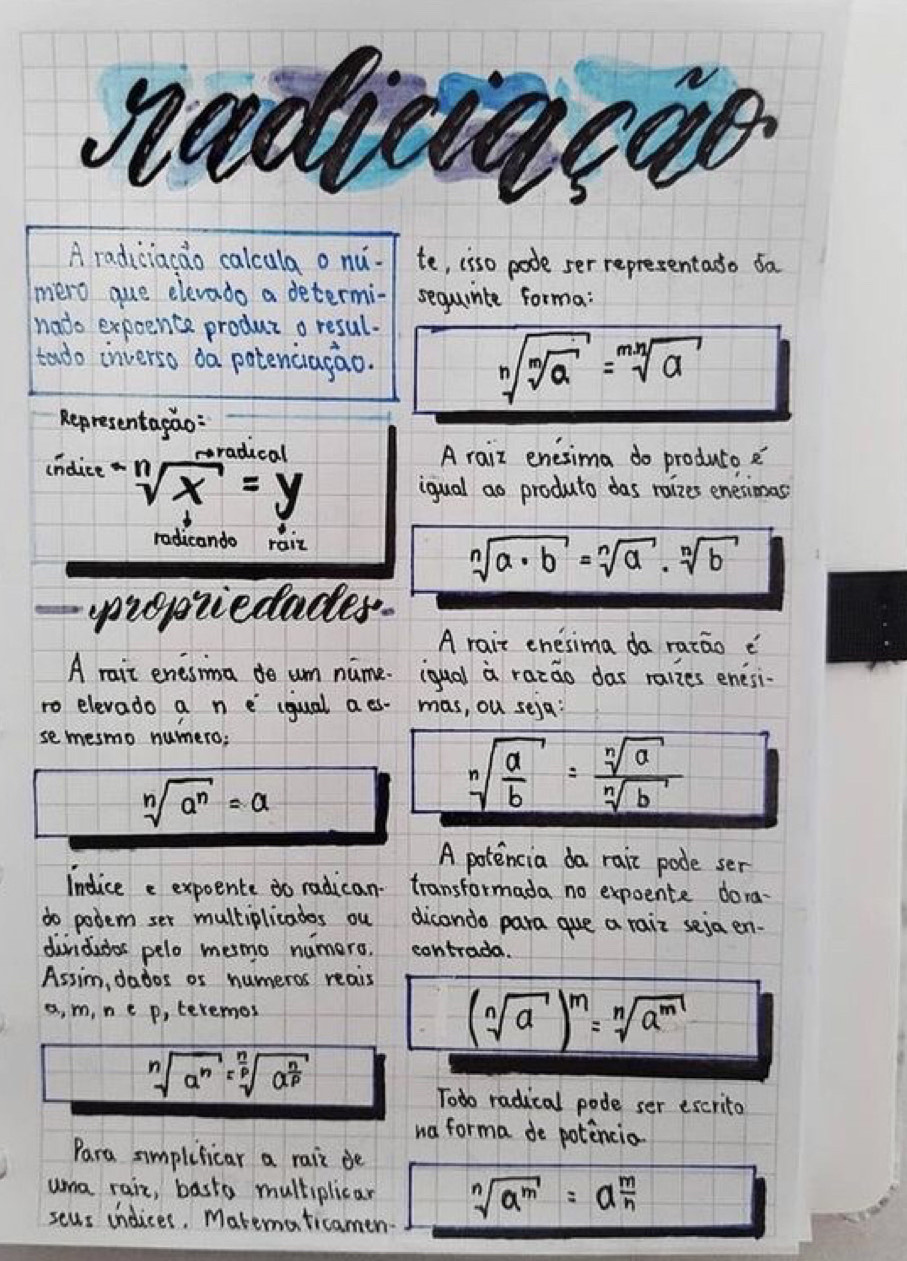 radiciação
A radiciação calcula o nú-
mero que elevado a determi-
nado expoente produz o resul-
tado inverso da potenciação.
Representação:
índice ← ⁿ√x = y → radical
radicando raiz
propriedades
A raiz enésima de um núme-
ro elevado a n é igual a es-
se mesmo número;
ⁿ√aⁿ = a
Índice e expoente do radican-
do podem ser multiplicados ou
divididos pelo mesmo número.
Assim, dados os números reais
a, m, n e p, teremos
ⁿ√(aⁿ) = ^(n/p)√(a^(n/p))
Para simplificar a raiz de
uma raiz, basta multiplicar
seus índices. Matematicamen-
te, isso pode ser representado da
seguinte forma:
ⁿ√(ᵐ√a) = ᵐ·ⁿ√a
A raiz enésima do produto é
igual ao produto das raízes enésimas
ⁿ√(a · b) = ⁿ√a . ⁿ√b
A raiz enésima da razão é
igual à razão das raízes enési-
mas, ou seja:
ⁿ√(a/b) = ⁿ√a / ⁿ√b
A potência da raiz pode ser
transformada no expoente do ra-
dicando para que a raiz seja en-
contrada.
(ⁿ√a)ᵐ = ⁿ√aᵐ
Todo radical pode ser escrito
na forma de potência
ⁿ√aᵐ = a^(m/n)